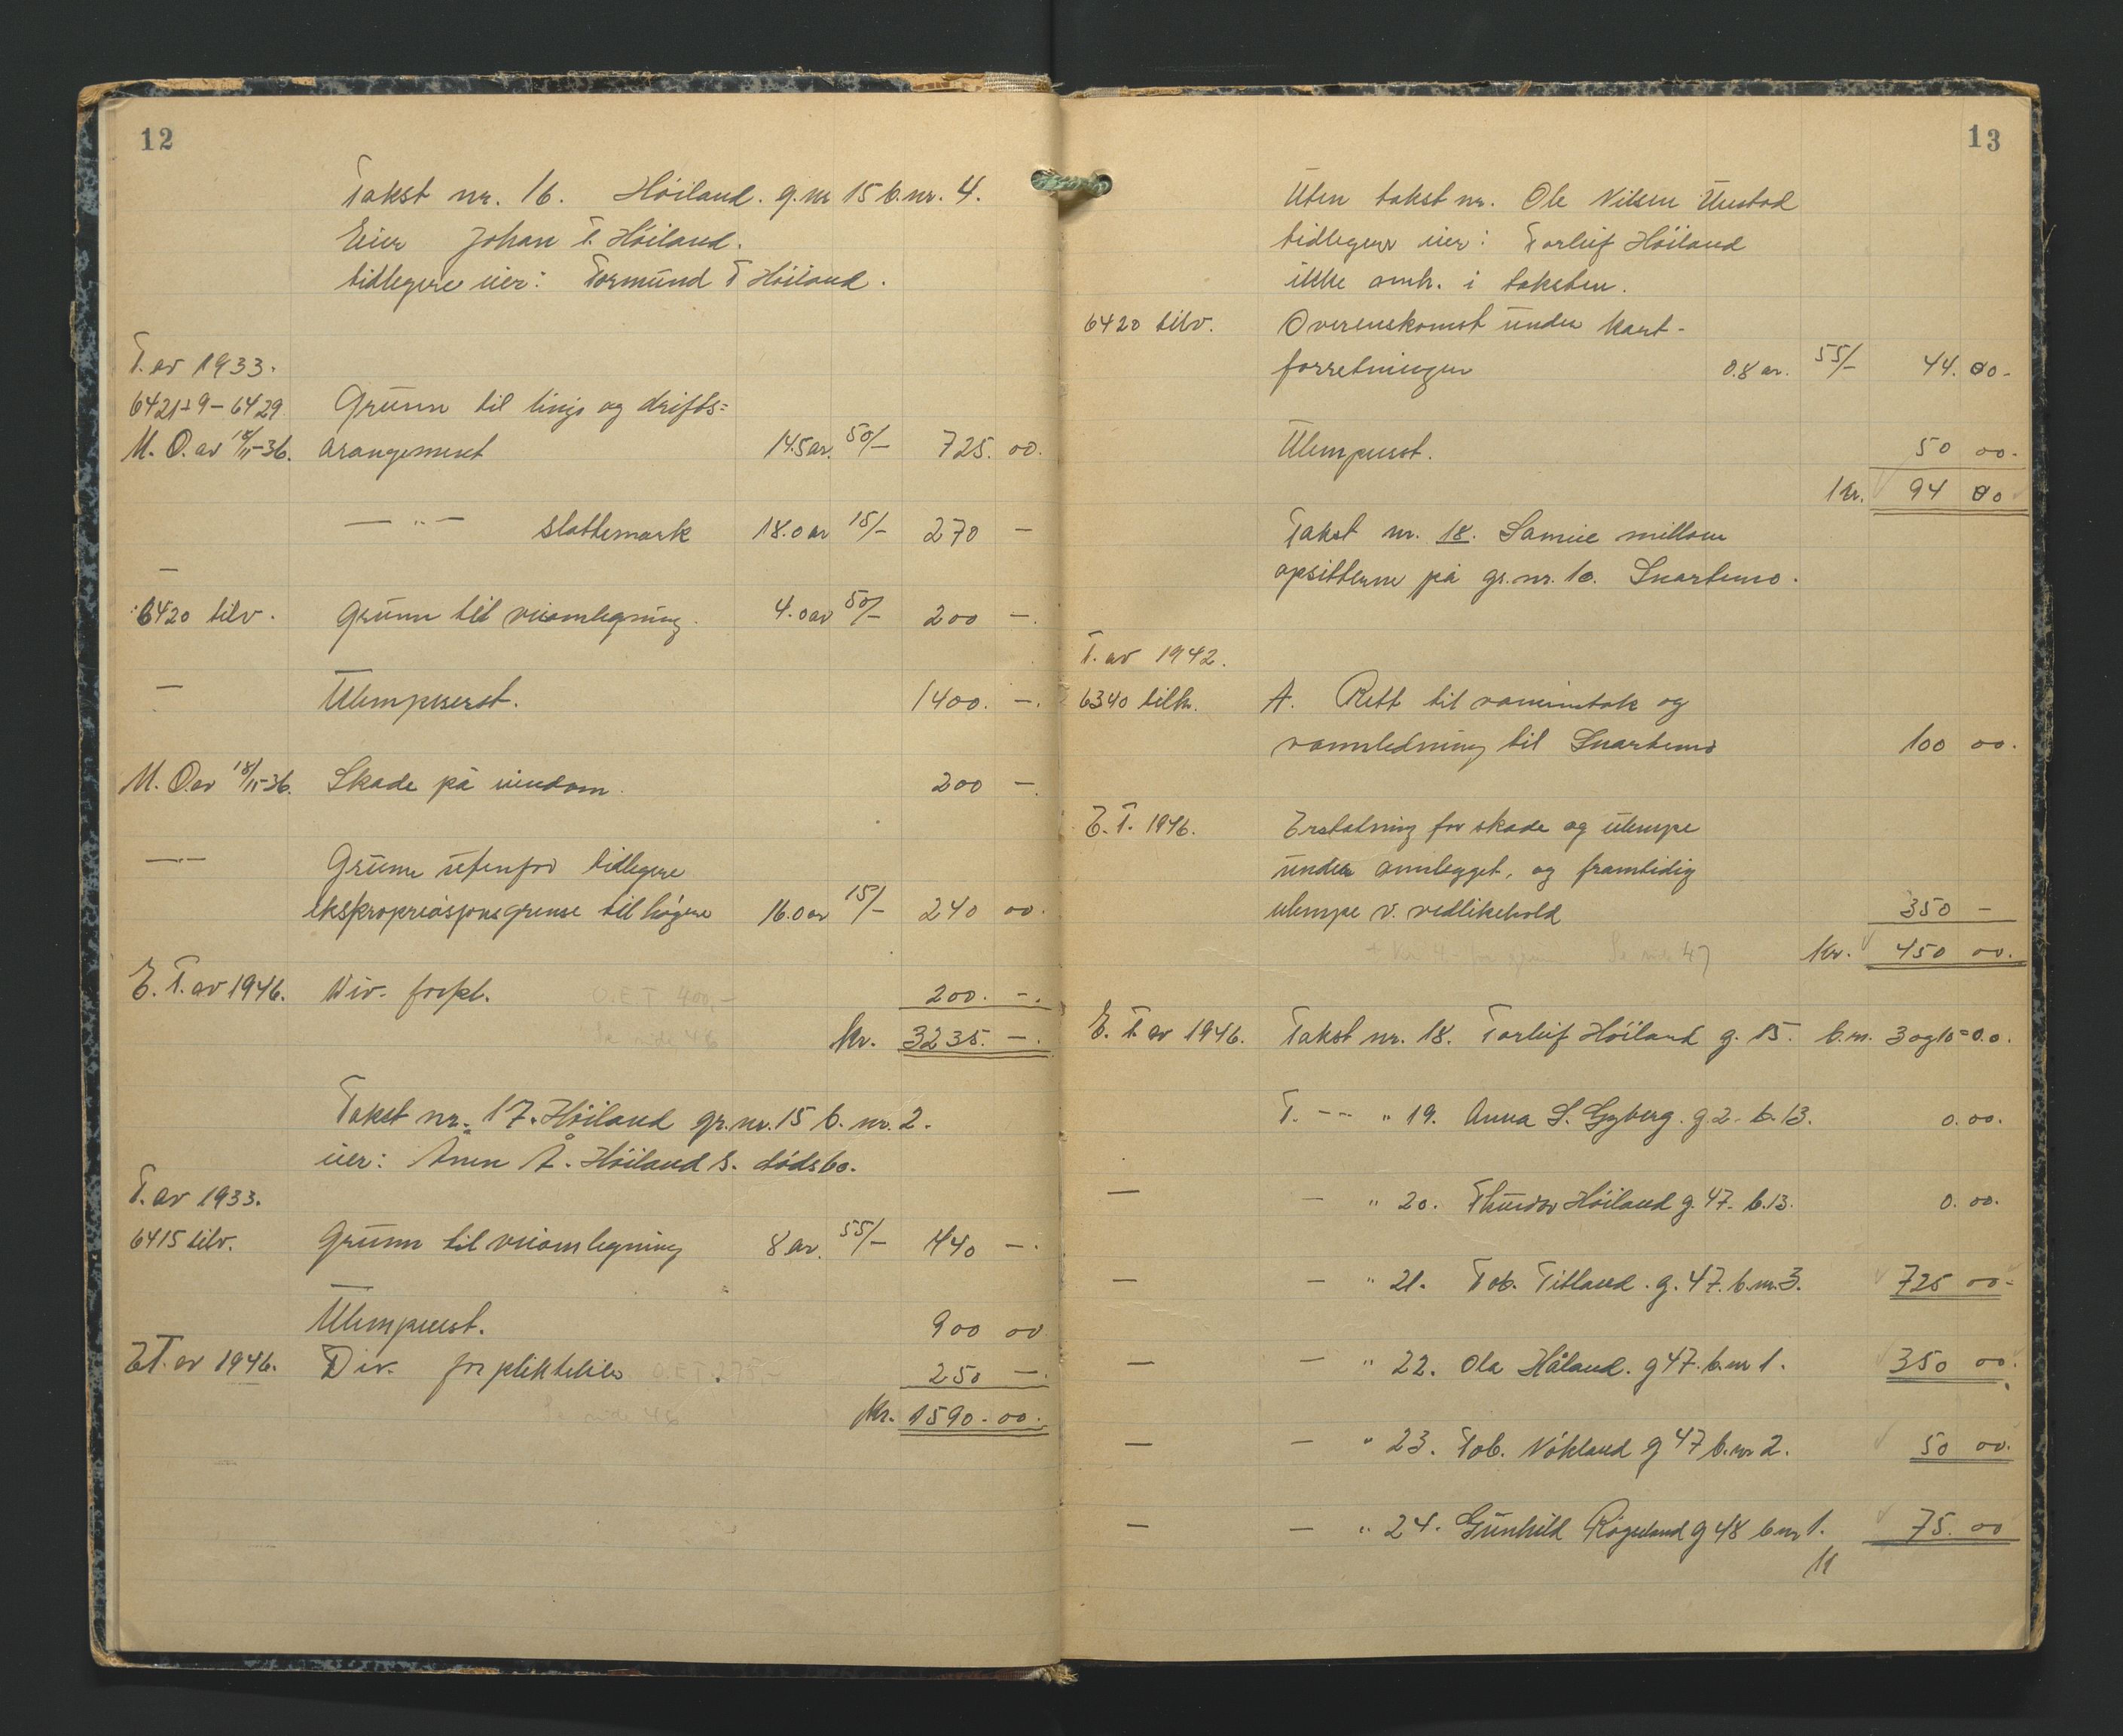 12
Takst nr. 16. Höiland. g.nr 15 b.nr. 4.
Eier Johan T. Höiland.
tidlegere eier: Tormund T Höiland.
T. av 1933.
6421+9-6429 Grunn til linje og drifts=
M.O. av 18/11-36. arangement 14.5 ar. 50/- 725. 00.
— " — slåttemark 18.0 ar 15/- 270 —
—
6420 tilv. Grunn til veiomlegning. 4.0 ar 50/- 200 —.
— Ulempeerst. 1400. —.
M.O. av 18/11-36. Skade på eiendom. 200 —.
—"— Grunn utenfor tidlegere
ekspropriasjonsgrense til högere 16.0 ar 15/- 240 00.
E.T. av 1946. Div. forpl. O.E.T. 400,- 200. —.
Se side 46 kr. 3235. —.
Takst nr. 17. Höiland gr.nr. 15 b. nr. 2.
eier: Anen Å. Höiland s. dödsbo.
T. av 1933.
6415 tilv. Grunn til veiomlegning 8 ar. 55/- 440 —.
Ulempeerst. 900 00
E.T. av 1946. Div. forpliktelser O.E.T. 275,- 250 —.
Se side 46 Kr. 1590.00.
13
Uten takst nr. Ole Nilsen Unstad
tidlegere eier: Torleif Höiland
ikke omh. i taksten.
6420 tilv. Overenskomst under kart-
forretningen 0.8 ar. 55/- 44. 00-
Ulempeerst. 50 00.
Kr. 94 00
Takst nr. 18. Sameie mellom
opsitterne på gr.nr. 10. Snartemo.
T. av 1942.
6340 tilh. A. Rett til vanninntak og
vannledning til Snartemo 100 00.
E.T. 1946. Erstatning for skade og ulempe
under annlegget, og framtidig
ulempe v. vedlikehold 350 —
Se side 47 Kr. 450 00.
E.T. av 1946. Takst nr. 18. Torleif Höiland g. 15. b.n. 3 og 10 = 0.0.
T. -- " 19. Anna S. Gyberg. g. 2. b. 13. 0.00.
— — " 20. Theodor Höiland g. 47. b.13. 0.00.
— — " 21. Tob. Titland. g. 47. b.nr. 3. 725 00-
— — " 22. Ola Håland. g 47. b.nr 1. 350 00.
— — " 23. Tob. Nökland g 47 b.nr 2. 50 00.
— — " 24. Gunhild Rögeland g 48 b nr 1. 75. 00
11